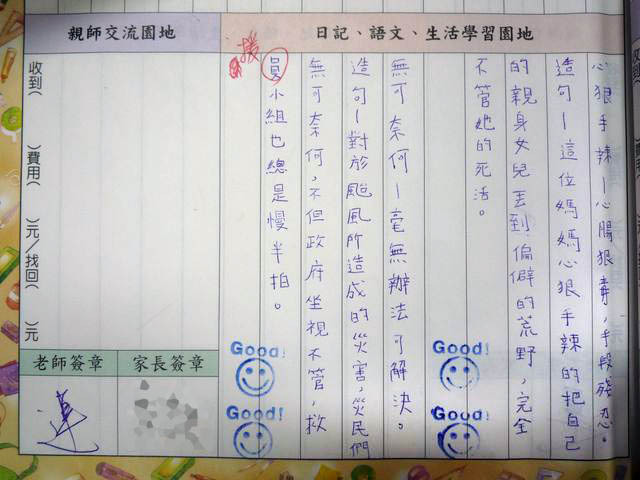 日記、語文、生活學習園地
心狠手辣－心腸狠毒，手段殘忍。
造句－這位媽媽心狠手辣的把自己
的親身女兒丟到偏僻的荒野，完全
不管她的死活。
無可奈何－毫無辦法可解決。
造句－對於颱風所造成的災害，災民們
無可奈何，不但政府坐視不管，救
員小組也總是慢半拍。
援
Good!
Good!
Good!
Good!
親師交流園地
收到（　）費用（　）元/找回（　）元
家長簽章
老師簽章